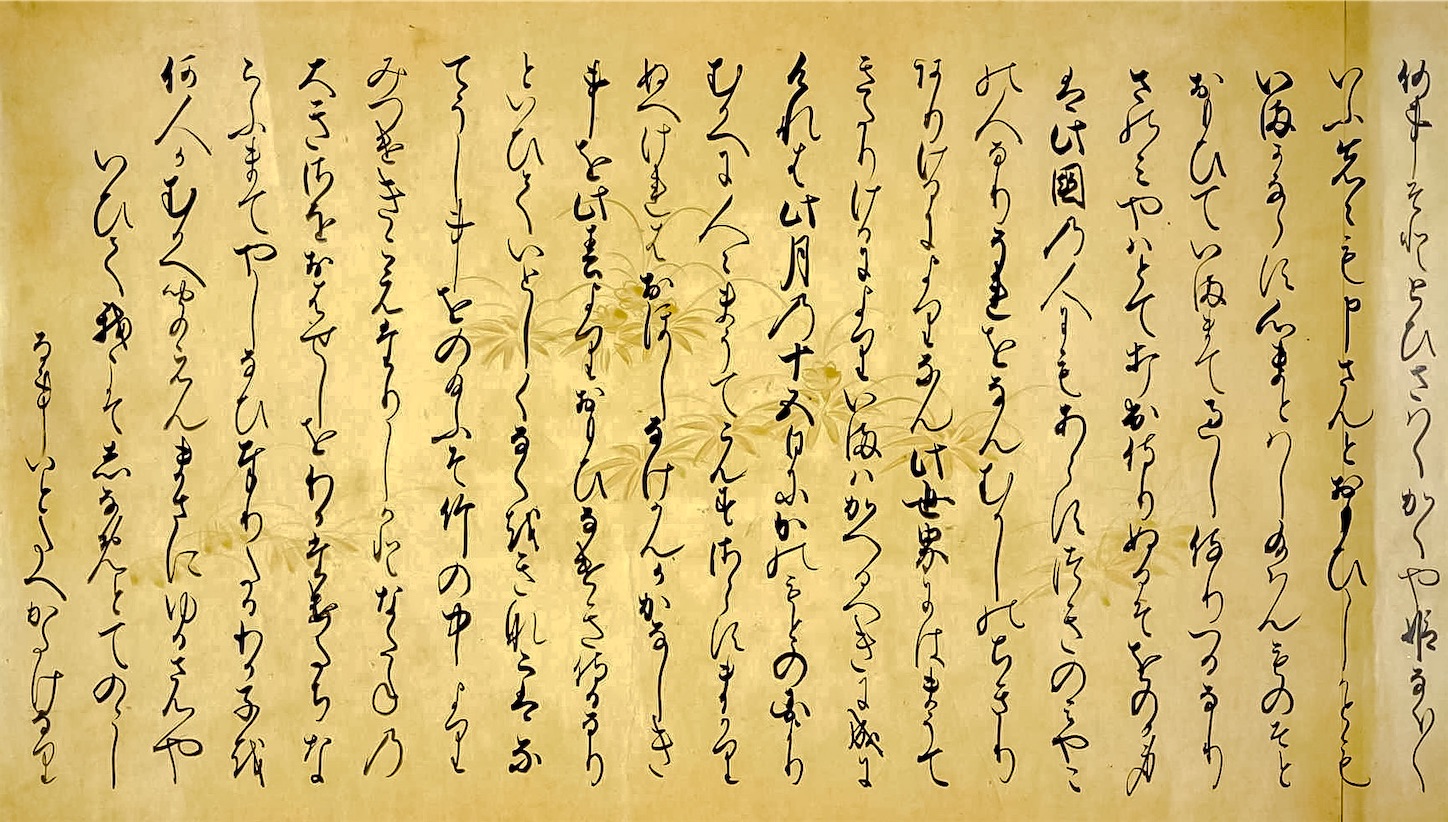 何事そなととひさはくかくや姫なく/\
いふ先/\も申さんとおもひしかとも
いまかならす心まとはし給はんものそと
おもひていままて過し侍りつるなり
さのみやはとてうち出侍りぬるそをのか身
は此國の人にもあらすつきのみやこ
の人なりそれをなんむかしのちきり
ありけるによりなん此世界にはまうて
きたりけるによりいまはかへるへきに成に
けれは此月の十五日にかのもとの國より
むかへに人/\まうてこんすさらすまかり
ぬへけれはおほしなけかんかかなしき
事を此春よりおもひなけき侍るなり
といひていとしくなくをきなこはな
てうし事をのたまふそ竹の中より
みつけきこえたりしかとなたねの
大きさをおはせしをわかたけたちな
らふまてやしなひたてまつりたるわか子を
何人かむかへきこえんまさにゆるさんや
いひて我こそしなめとてのゝし
る事いとたへかたけなり